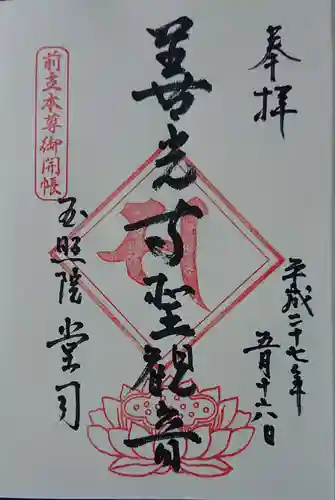 奉拝
平成二十七年
五月十六日
善光寺聖観音
前立本尊御開帳
玉照院
堂司